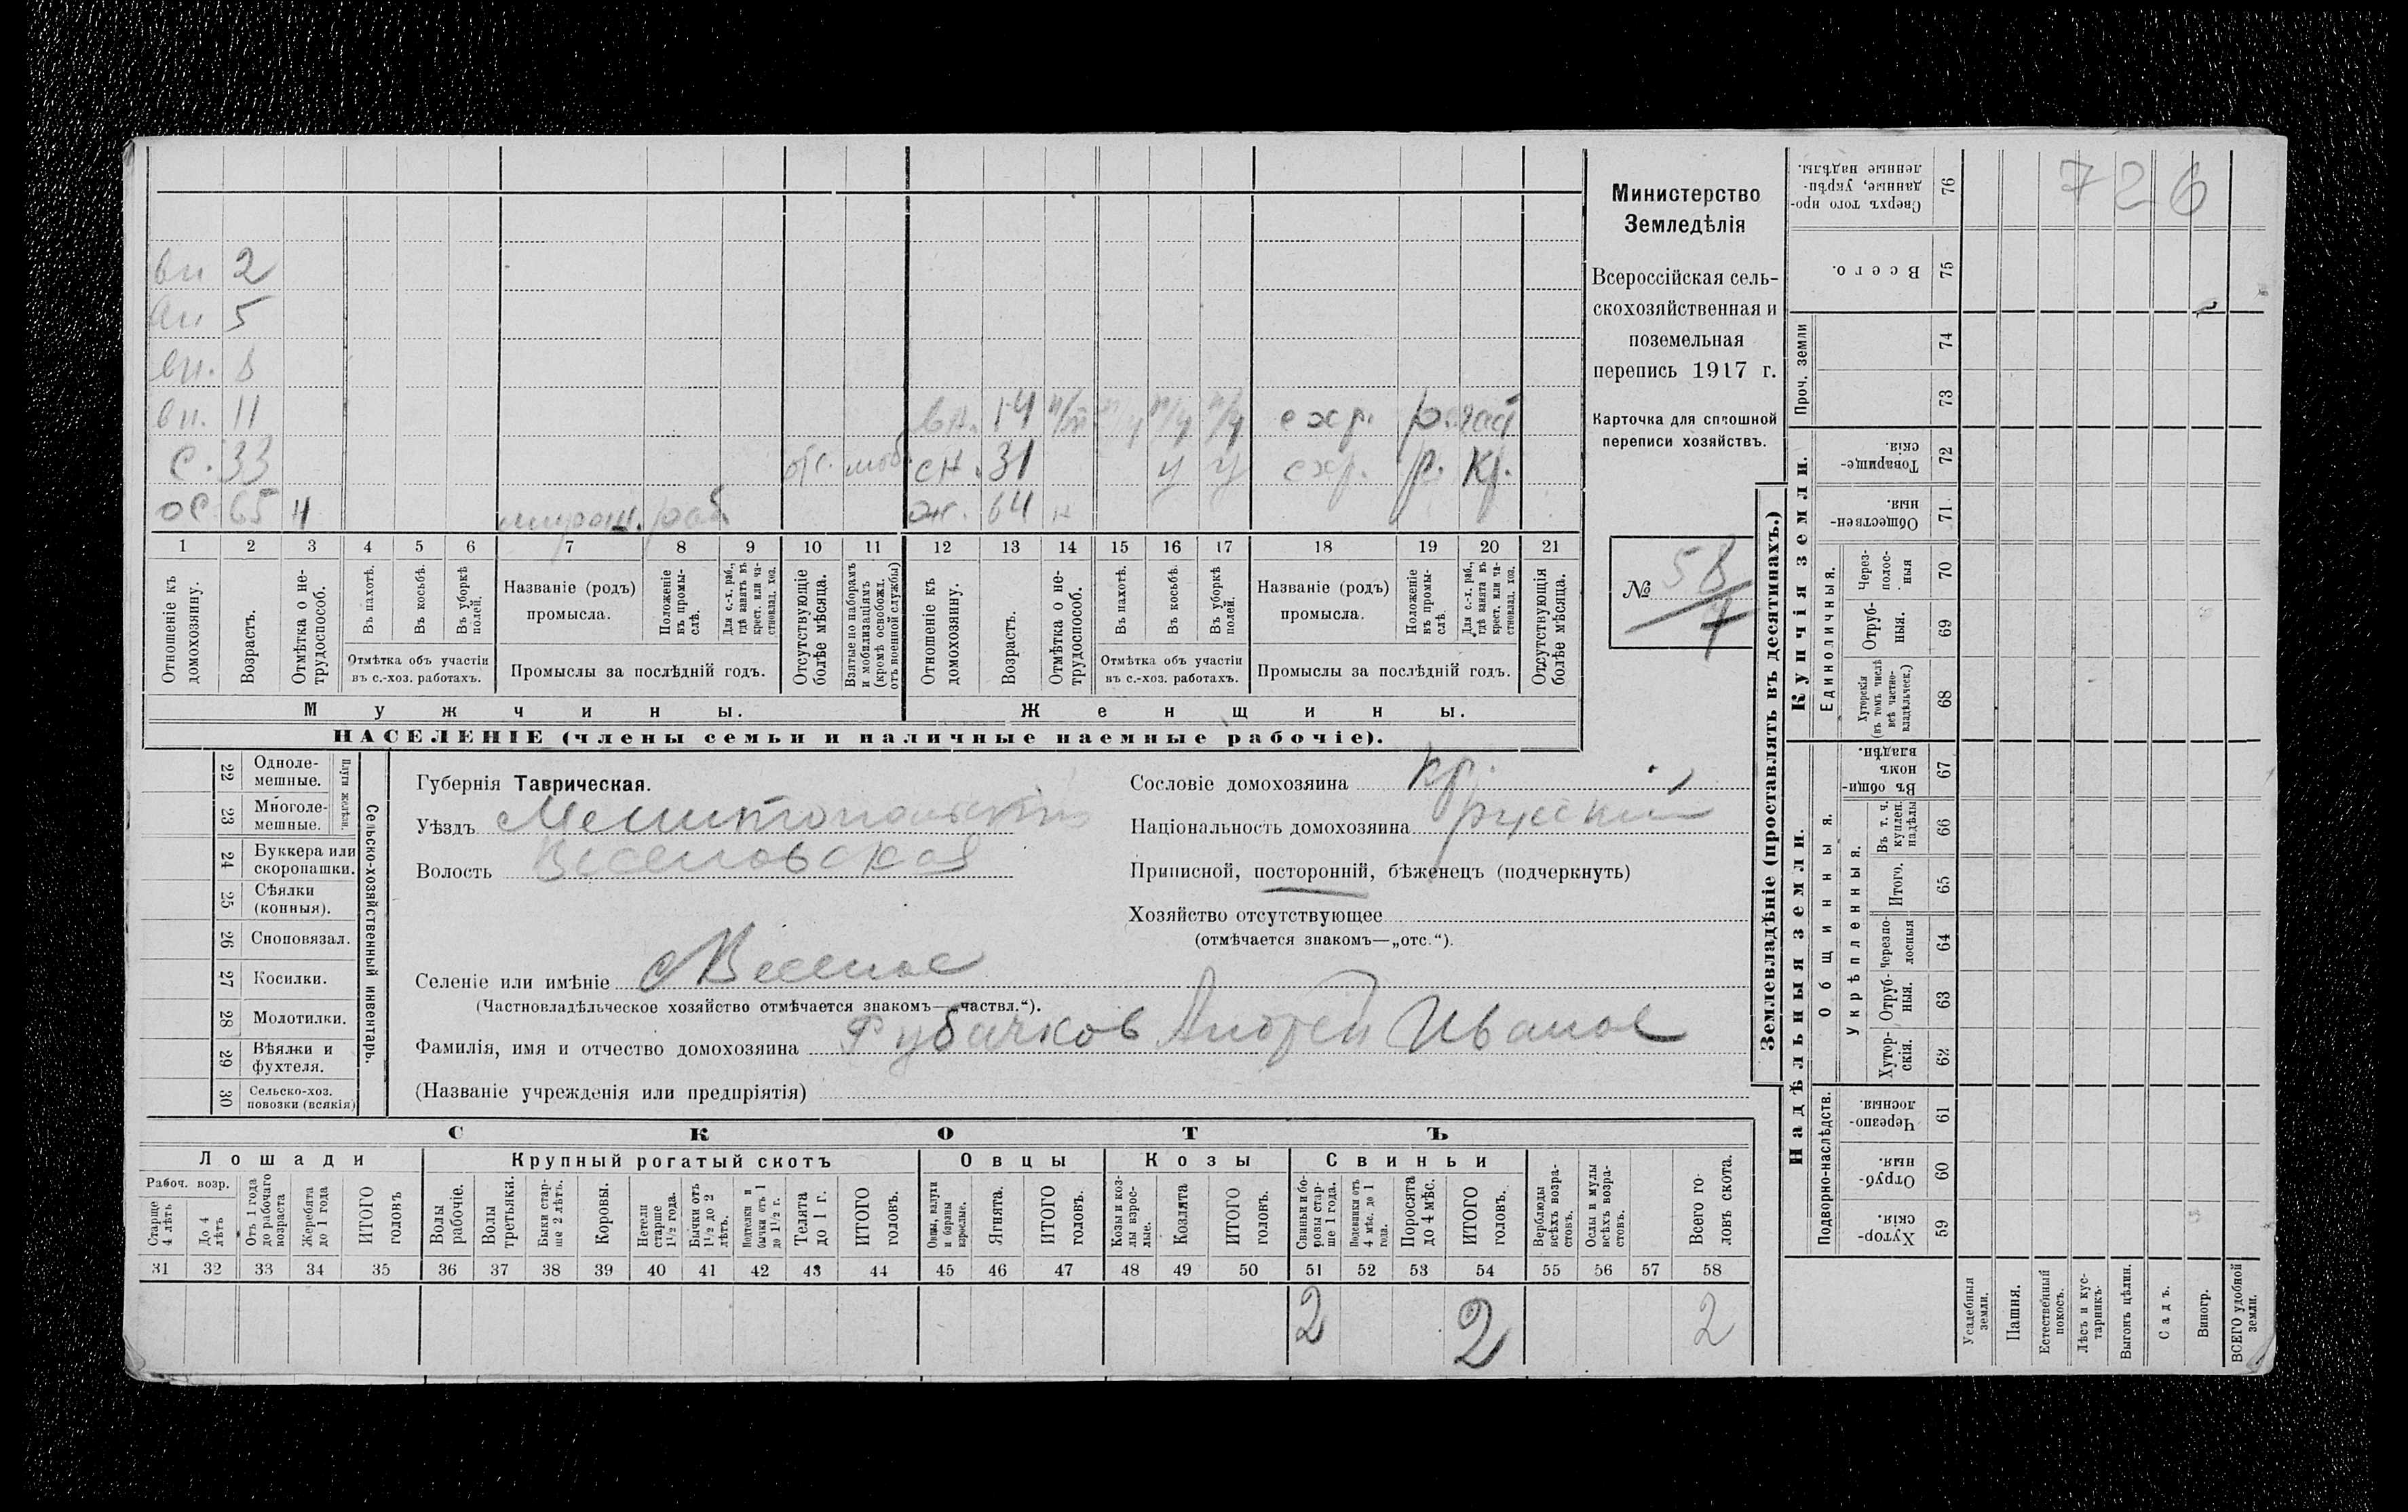 вн 2
вн 5
вн. 8
вн. 11 вн. 14 н/т н/у н/у н/у схр. р. час
с. 33 отс. моб. сн. 31 у у схр. р. кр.
ос 65 н раб. ж. 64 н
1 2 3 4 5 6 7 8 9 10 11 12 13 14 15 16 17 18 19 20 21
Отношеніе къ домохозяину.
Возрастъ.
Отмѣтка о нетрудоспособ.
Въ пахотѣ.
Въ косьбѣ.
Въ уборкѣ полей.
Отмѣтка объ участіи въ с.-хоз. работахъ.
Названіе (родъ) промысла.
Положеніе въ промыслѣ.
Для с.-х. раб., гдѣ занятъ въ крест. или частновлад. хоз.
Промыслы за послѣдній годъ.
Отсутствующіе болѣе мѣсяца.
Взятые по наборамъ и мобилизаціямъ (кромѣ освобожд. отъ военной службы)
Отношеніе къ домохозяину.
Возрастъ.
Отмѣтка о нетрудоспособ.
Въ пахотѣ.
Въ косьбѣ.
Въ уборкѣ полей.
Отмѣтка объ участіи въ с.-хоз. работахъ.
Названіе (родъ) промысла.
Положеніе въ промыслѣ.
Для с.-х. раб., гдѣ занята въ крест. или частновлад. хоз.
Промыслы за послѣдній годъ.
Отсутствующія болѣе мѣсяца.
Мужчины. Женщины.
НАСЕЛЕНІЕ (члены семьи и наличные наемные рабочіе).
Министерство
Земледѣлія
Всероссійская сель-
скохозяйственная и
поземельная
перепись 1917 г.
Карточка для сплошной
переписи хозяйствъ.
№ 58/7
22 Одноле-мешные.
23 Многоле-мешные.
Плуги желѣзн.
24 Буккера или скоропашки.
25 Сѣялки (конныя).
26 Сноповязал.
27 Косилки.
28 Молотилки.
29 Вѣялки и фухтеля.
30 Сельско-хоз. повозки (всякія)
Сельско-хозяйственный инвентарь.
Губернія Таврическая.
Уѣздъ Мелитопольскій
Волость Веселовская
Селеніе или имѣніе с Веселое
(Частновладѣльческое хозяйство отмѣчается знакомъ—„частвл.“).
Сословіе домохозяина кр.
Національность домохозяина русскій
Приписной, посторонній, бѣженецъ (подчеркнуть)
Хозяйство отсутствующее
(отмѣчается знакомъ—„отс.“).
Фамилія, имя и отчество домохозяина Рубачков Андрей Иванов
(Названіе учрежденія или предпріятія)
СКОТЪ
Лошади Крупный рогатый скотъ Овцы Козы Свиньи
Рабоч. возр.
Старше 4 лѣтъ
До 4 лѣтъ
Отъ 1 года до рабочаго возраста
Жеребята до 1 года
ИТОГО головъ
Волы рабочіе.
Волы третьяки.
Быки старше 2 лѣтъ.
Коровы.
Нетели старше 1½ года.
Бычки отъ 1½ до 2 лѣтъ.
Подтелки и бычки отъ 1 до 1½ г.
Телята до 1 г.
ИТОГО головъ.
Овцы, валухи и бараны взрослые.
Ягнята.
ИТОГО головъ.
Козы и козлы взрослые.
Козлята
ИТОГО головъ.
Свиньи и боровы старше 1 года.
Подсвинки отъ 4 мѣс. до 1 года.
Поросята до 4 мѣс.
ИТОГО головъ.
Верблюды всѣхъ возрастовъ.
Ослы и мулы всѣхъ возрастовъ.
Всего головъ скота.
31 32 33 34 35 36 37 38 39 40 41 42 43 44 45 46 47 48 49 50 51 52 53 54 55 56 57 58
2 2 2
Землевладѣніе (проставлять въ десятинахъ.)
726
Сверхъ того проданные, укрѣпленные надѣлы. 76
Всего. 75
Проч. земли 74
73
Купчія земли.
Товарищескія. 72
Общественныя. 71
Единоличныя.
Черезполосныя 70
Отрубныя. 69
Хуторскія (въ томъ числѣ всѣ частновладѣльческ.) 68
Надѣльныя земли.
Общинныя.
Въ общинномъ владѣн. 67
Укрѣпленныя.
Въ т. ч. куплен. надѣлы 66
Итого. 65
Черезполосныя 64
Отрубныя. 63
Хуторскія. 62
Подворно-наслѣдств.
Черезполосныя. 61
Отрубныя. 60
Хуторскія. 59
Усадебныя земли.
Пашня.
Естественный покосъ.
Лѣсъ и кустарникъ.
Выгонъ цѣлин.
Садъ.
Виногр.
ВСЕГО удобной земли.